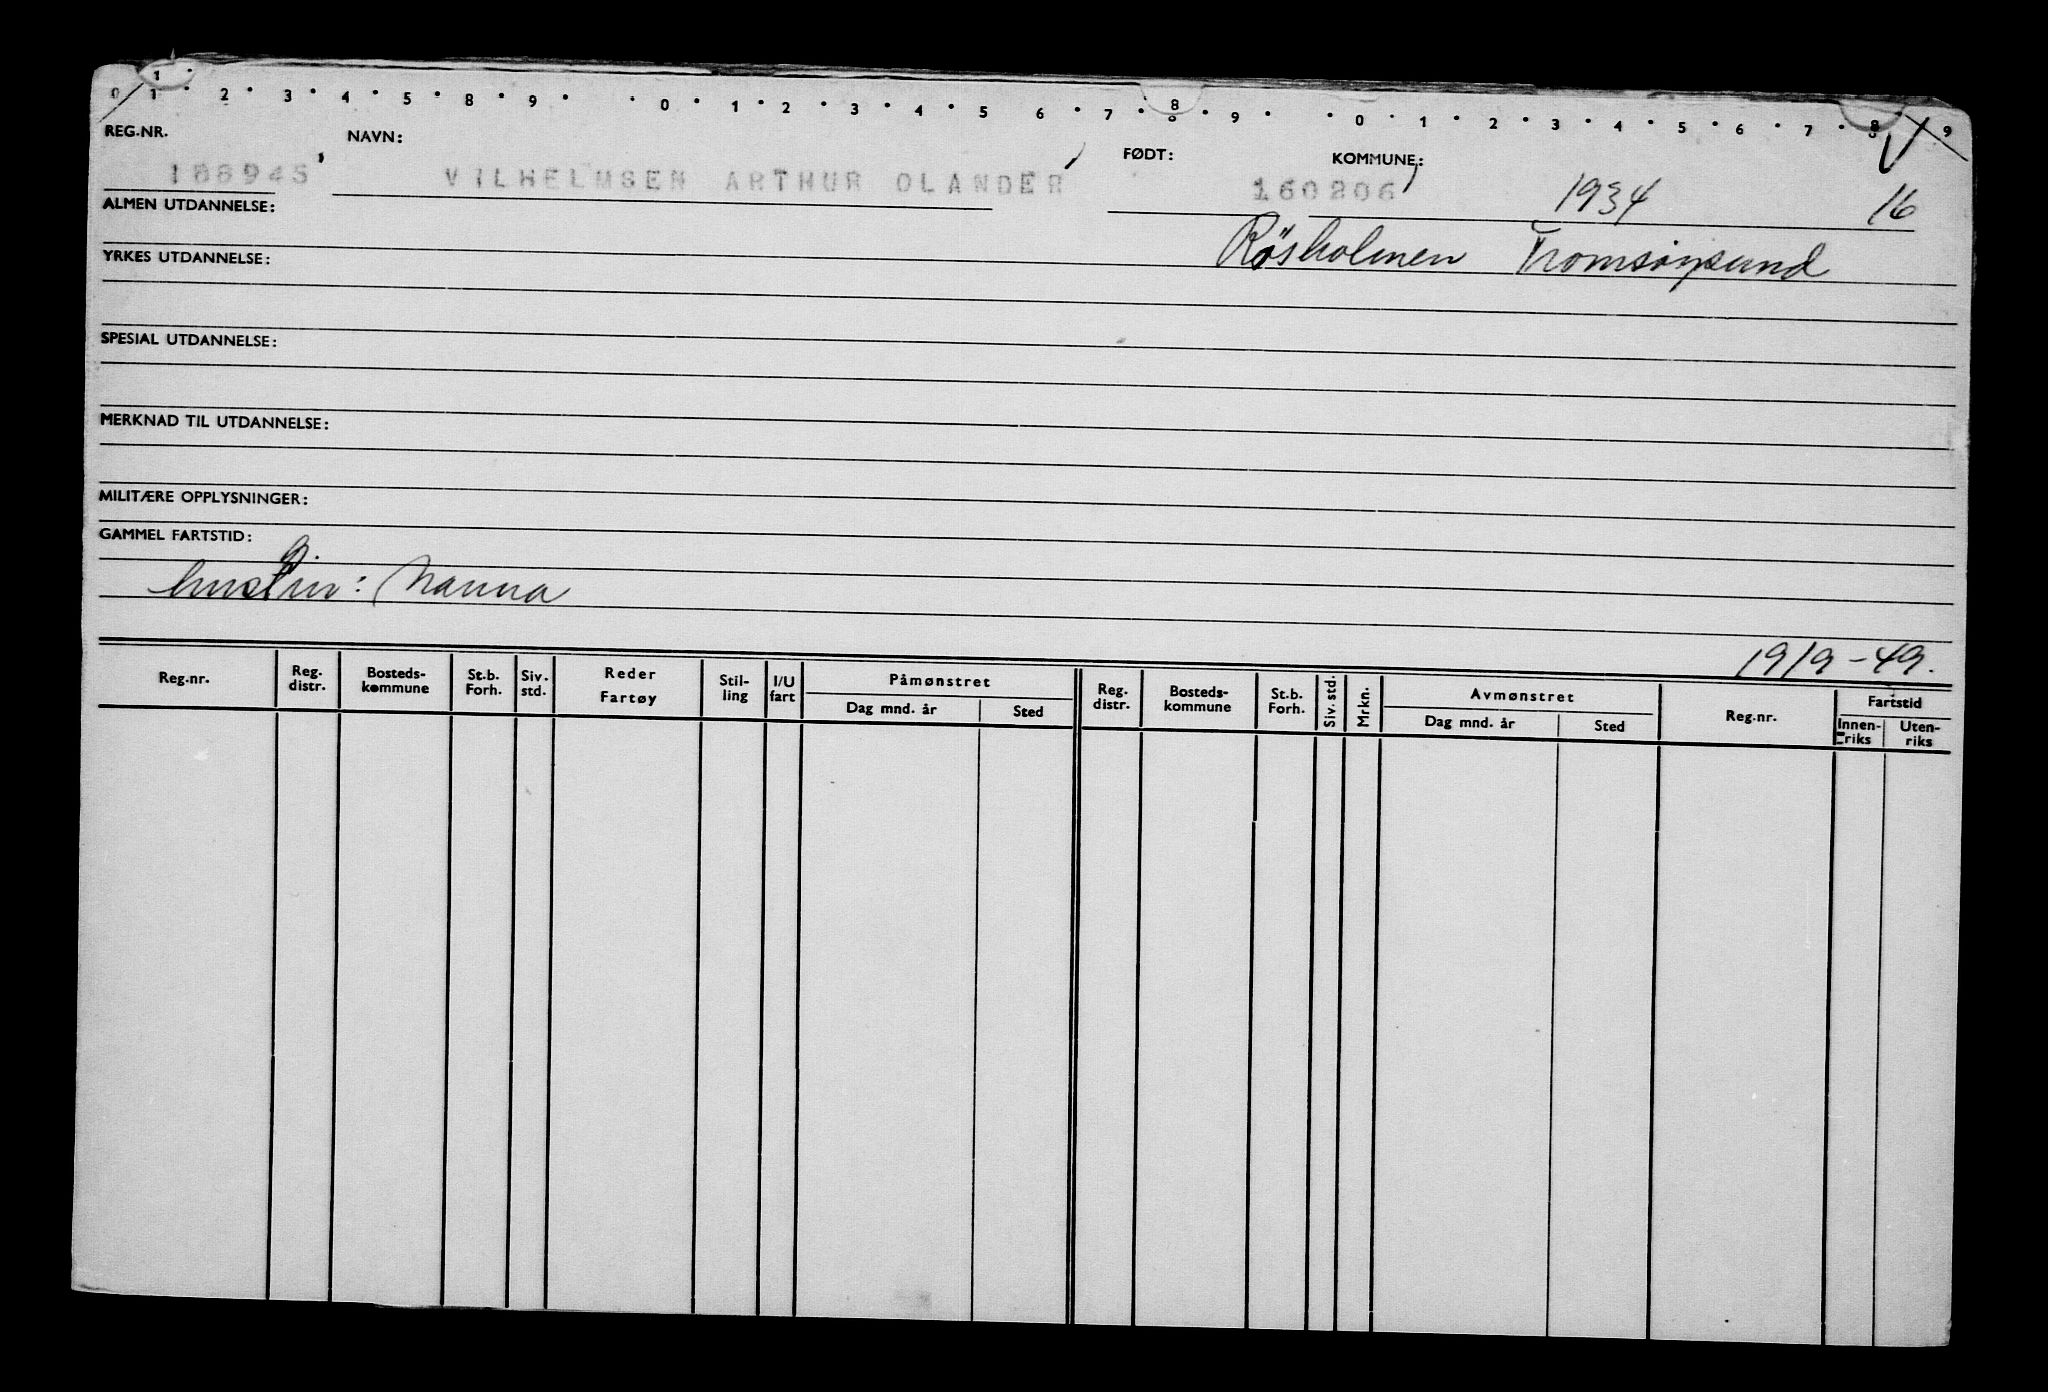 0 1 2 3 4 5 8 9 0 1 2 3 4 5 6 7 8 9 0 1 2 3 4 5 6 7 8 9
REG.NR. NAVN: FØDT: KOMMUNE:
VILHELMSEN ARTHUR OLANDER 160206 1934 16
ALMEN UTDANNELSE:
Røsholmen Tromsøysund
YRKES UTDANNELSE:
SPESIAL UTDANNELSE:
MERKNAD TIL UTDANNELSE:
MILITÆRE OPPLYSNINGER:
GAMMEL FARTSTID:
g.
hustru: Nanna
1919-49.
Reg.nr. Reg. distr. Bosteds-kommune St.b. Forh. Siv. std. Reder Fartøy Stil-ling I/U fart Påmønstret Dag mnd. år Sted Reg. distr. Bosteds-kommune St.b. Forh. Siv. std. Mrkn. Avmønstret Dag mnd. år Sted Reg.nr. Fartstid Innen-riks Uten-riks